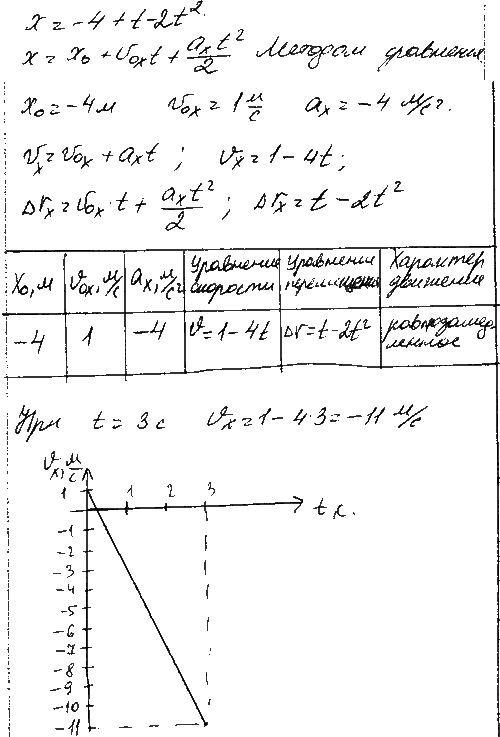 x = -4 + t - 2t².
x = x₀ + v₀ₓt + aₓt²/2 Методом уравнения
x₀ = -4 м v₀ₓ = 1 м/с aₓ = -4 м/с².
vₓ = v₀ₓ + aₓt ; vₓ = 1 - 4t;
Δrₓ = v₀ₓ·t + aₓt²/2 ; Δrₓ = t - 2t²
x₀, м v₀ₓ, м/с aₓ, м/с² Уравнение скорости Уравнение перемещения Характер движения
-4 1 -4 v = 1 - 4t Δr = t - 2t² равнозамедленное
При t = 3 с vₓ = 1 - 4·3 = -11 м/с
vₓ, м/с
1 1 2 3
t
-1
-2
-3
-4
-5
-6
-7
-8
-9
-10
-11